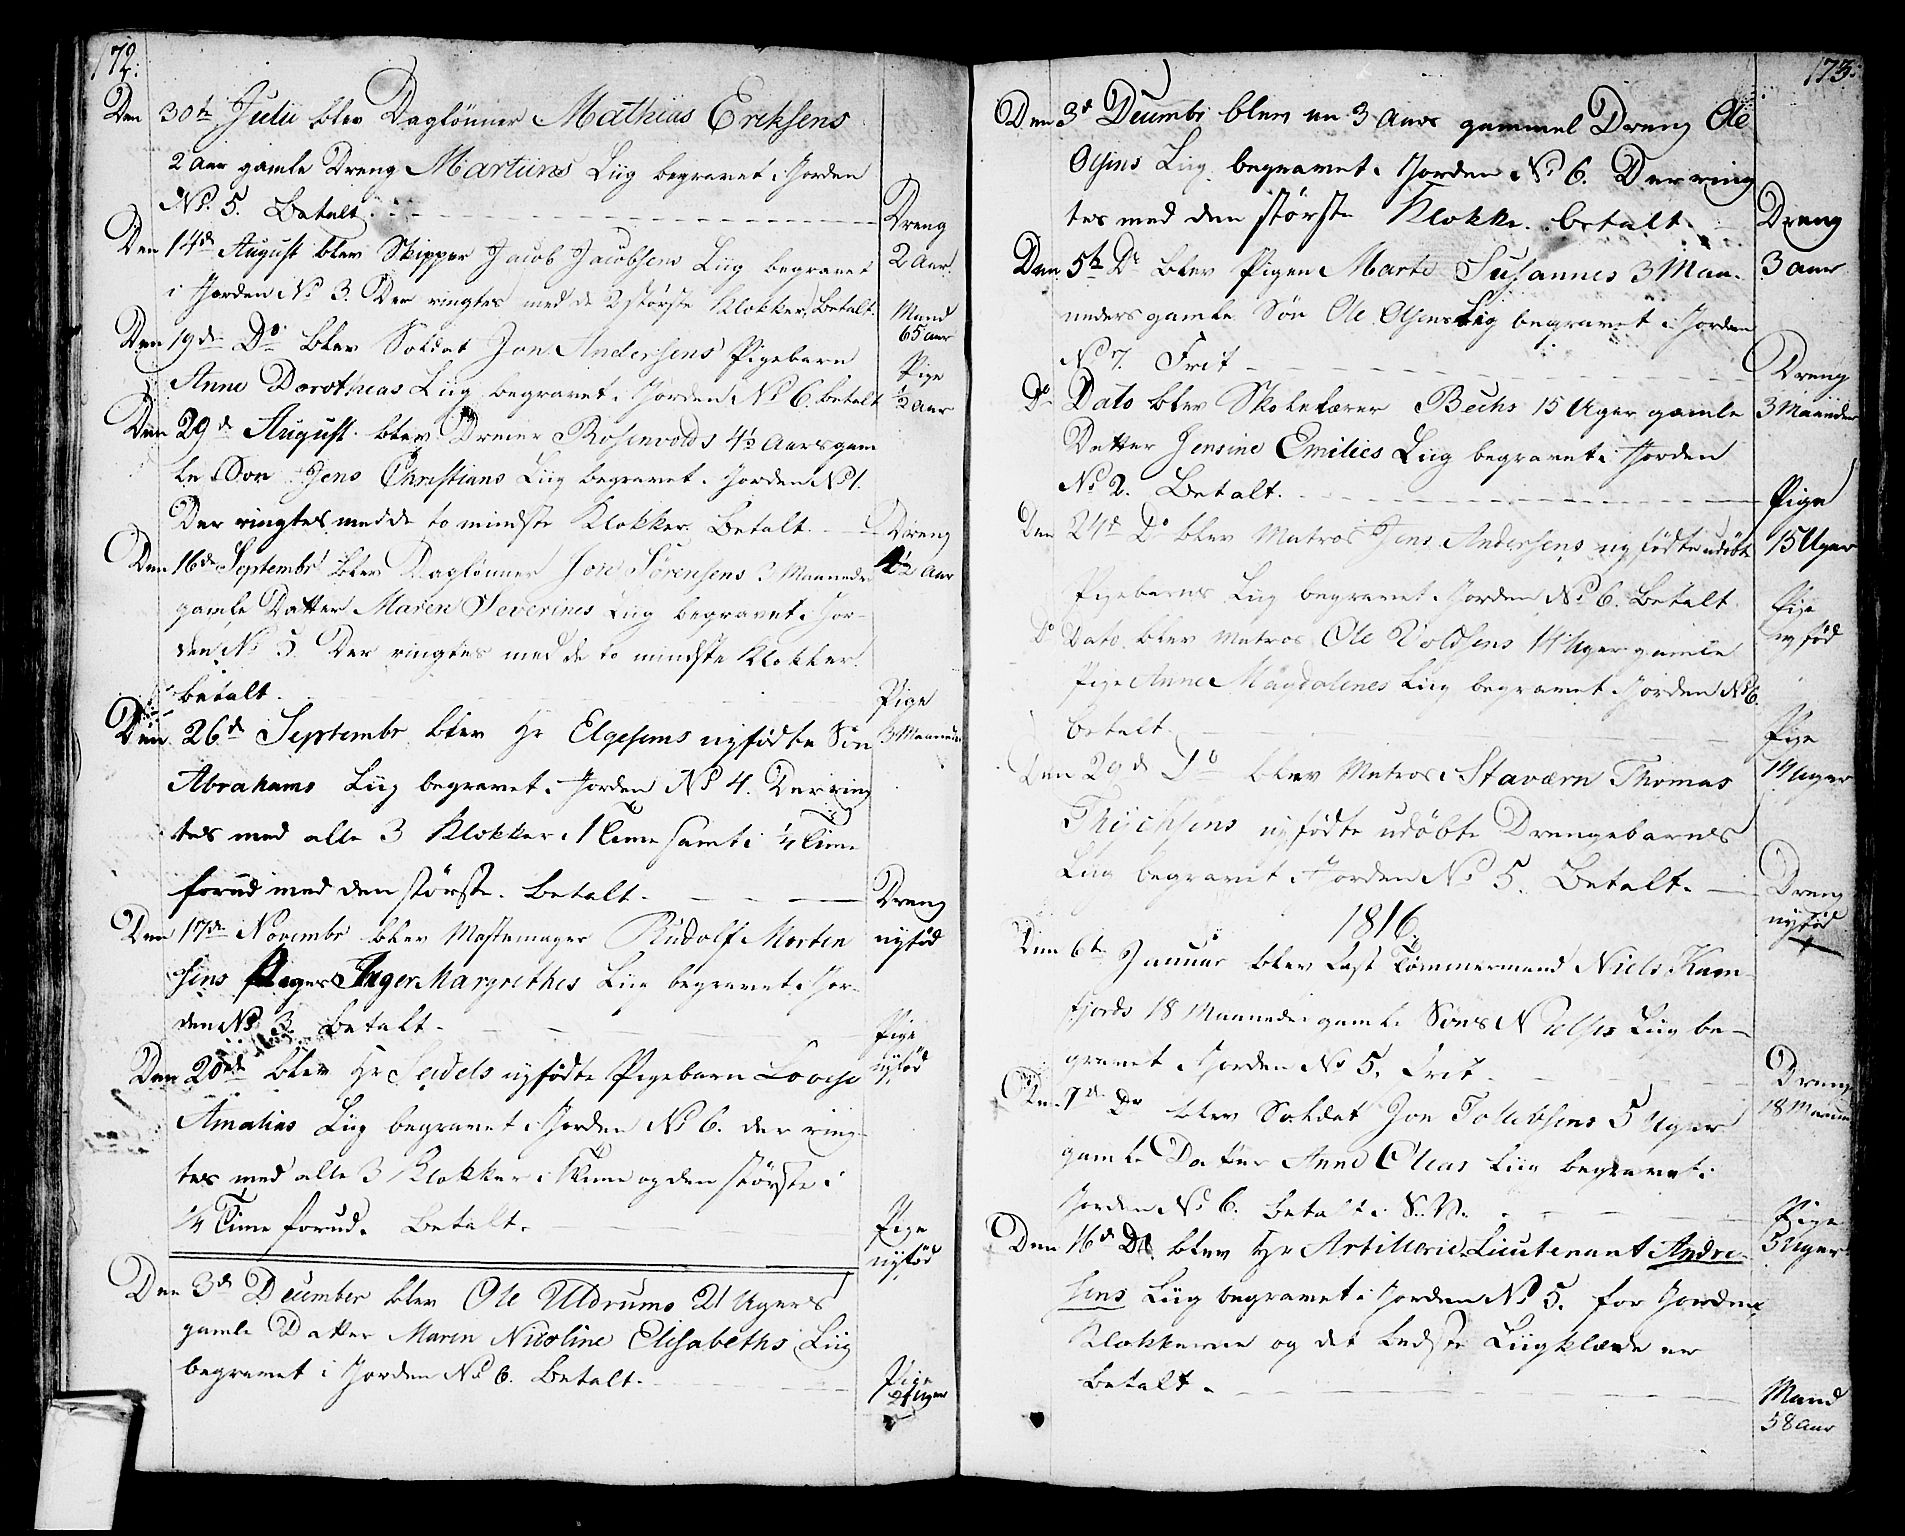 172.
Den 30te Julii blev Daglönner Mathias Eriksens
2 Aar gamle Dreng Martiins Liig begravet i Jorden
No. 5. Betalt. Dreng
2 Aar.
Den 14de August blev Skipper Jacob Jacobsens Liig begravet
i Jorden No 3. Der ringtes med de 2 störste Klokker, Betalt.
Mand
65 aar
Den 19de Do blev Soldat Jon Andersens Pigebarn
Anne Dorotheas Liig begravet i Jorden No 6. betalt
Pige
1/2 Aar
Den 29de August blev Dreier Rosenvolds 4½ Aars gam
le Sön Jens Christians Liig begravet i Jorden No 1.
Der ringtes med de to mindste Klokker. Betalt.
Dreng
4½ Aar
Den 16de Septembr blev Daglönner Jon Sörensens 3 Maaneder
gamle Datter Maren Severines Liig begravet i Jor-
den No 5. Der ringtes med de to mindste Klokker.
betalt.
Pige
3 Maaneder
Den 26de Septembr blev Hr Elgesems nyfödte Sön
Abrahams Liig begravet i Jorden No 4. Der ring
tes med alle 3 Klokker i 1 Time samt i 1/4 Time
forud med den störste. Betalt.
Dreng
nyfød
Den 17de Novembr blev Mastemager Rudolf Morten
sens Piges Inger Margrethes Liig begravet i Jor-
den No 3. Betalt.
Pige
nyfød
Den 20de blev Hr Seidels nyfödte Pigebarn Lovise
Amalias Liig begravet i Jorden No 6. der ring-
tes med alle 3 Klokker i 1 Time og den störste i
1/4 Time forud. Betalt.
Pige
nyfød
Den 3de December blev Ole Uldrums 21 Ugers
gamle Datter Maren Nicoline Elisabeths Liig
begravet i Jorden No 6. Betalt.
Pige
21 Uger
173.
Den 3de Decembr blev en 3 Aars gammel Dreng Ole
Olsens Liig begravet i Jorden No 6. Der ring
tes med den störste Klokke. betalt.
Dreng
3 aar
Den 5te Do blev Pigen Marte Susannes 3 Maa-
neders gamle Sön Ole Olsens Liig begravet i Jorden
No 7. Frit
Dreng
3 Maaneder
Do Dato blev Skolelærer Bechs 15 Uger gamle
Datter Jensine Emilies Liig begravet i Jorden
No 2. Betalt.
Pige
15 Uger
Den 24de Do blev Matros Jens Andersens nyfödte udöbte
Pigebarns Liig begravet i Jorden No 6. Betalt.
Pige
nyfød
Do Dato blev Matros Ole Voldsens 14 Uger gamle
Pige Anne Magdalenes Liig begravet i Jorden No 6.
betalt.
Pige
14 Uger
Den 29de Do blev Matros i Staværn Thomas
nyfödte udöbte Drengebarnes
Liig begravet i Jorden No 5. Betalt.
Dreng
nyfød
1816.
Den 6te Januar blev Tømmermand Niels Kam-
fjords 18 Maaneder gamle Söns Liig be-
gravet i Jorden No 5. Frit.
Dreng
18 Maaneder
Den 7de Do blev Soldat Jon Tollebsens 5 Uger
gamle Datter Anne Oleas Liig begravet i
Jorden No 6. betalt i S. V.
Pige
5 Uger
Den 16de Do blev Hr Artillerie Lieutenant Andre-
sens Liig begravet i Jorden No 5. for Jorden
Klokkerne og det bedste Liigklæde er
betalt.
Mand
58 Aar